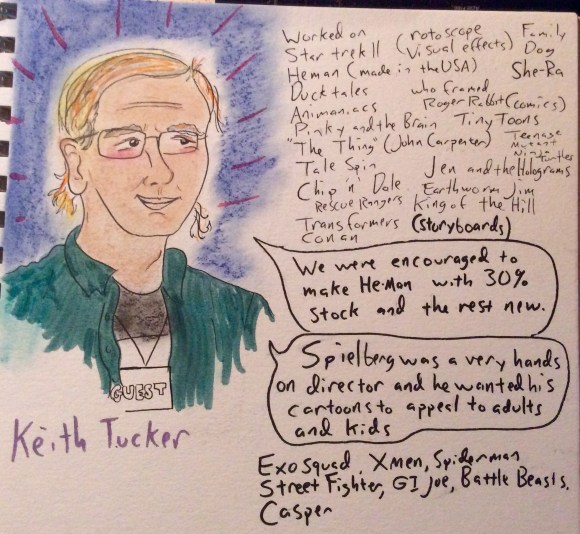 Worked on
Star trek II (rotoscope Visual effects)
Family Dog
Heman (made in the USA)
She-Ra
Ducktales
who framed Roger Rabbit (comics)
Animaniacs
Pinky and the Brain
Tiny Toons
"The Thing" (John Carpenter)
Teenage Mutant Ninja turtles
Tale Spin
Jen and the Holograms
Chip 'n' Dale Rescue Rangers
Earthworm Jim
King of the Hill
Transformers (storyboards)
Conan
We were encouraged to
make He-Man with 30%
stock and the rest new.
Spielberg was a very hands
on director and he wanted his
cartoons to appeal to adults
and kids
GUEST
Keith Tucker
Exo Squad, Xmen, Spiderman
Street Fighter, GI Joe, Battle Beasts,
Casper